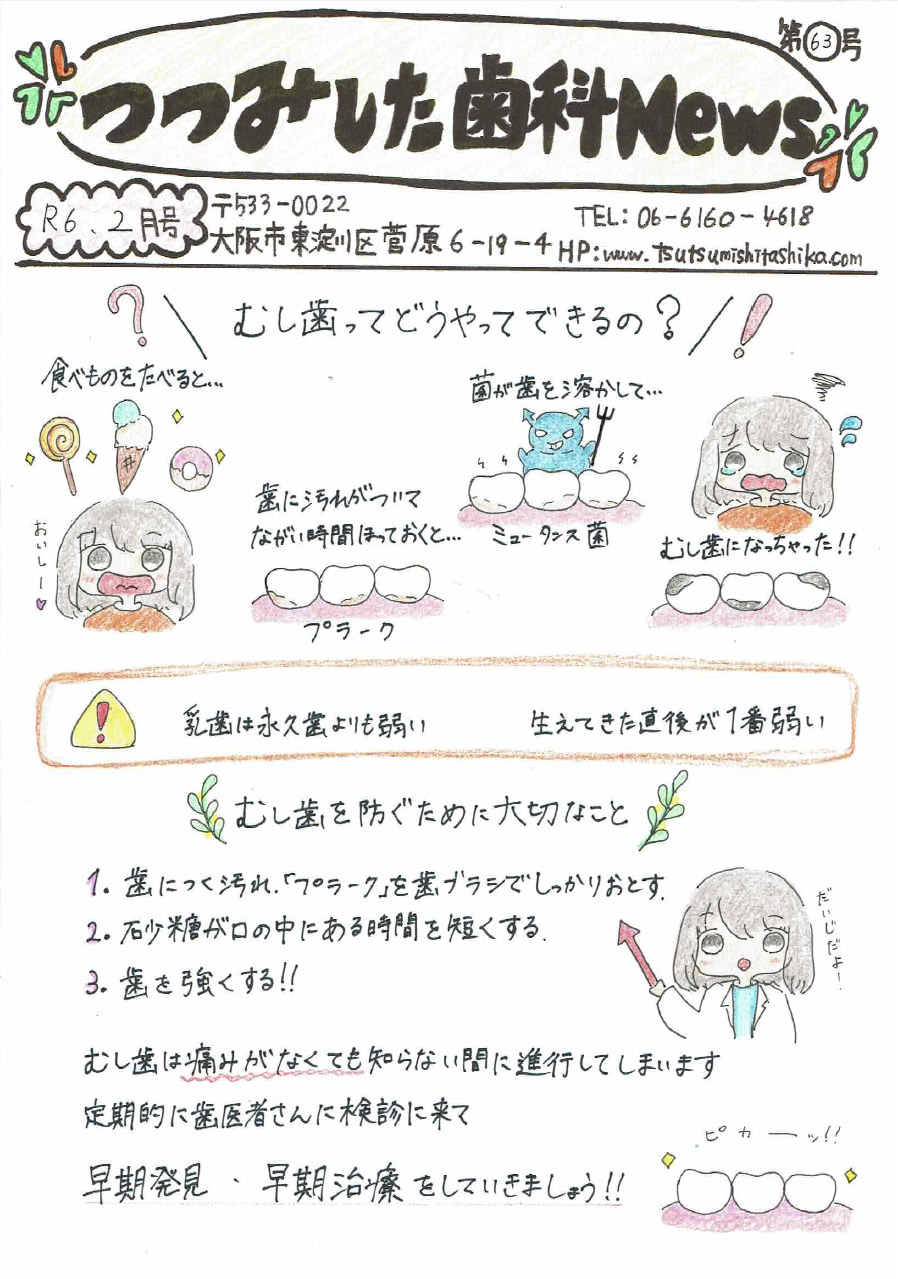 第63号
つつみした歯科News
R6.2月号
〒533-0022
大阪市東淀川区菅原6-19-4
TEL:06-6160-4618
HP:www.tsutsumishitashika.com
? むし歯ってどうやってできるの? !
食べものをたべると...
おいしー
歯に汚れがついて
ながい時間ほっておくと...
プラーク
菌が歯を溶かして...
ミュータンス菌
むし歯になっちゃった!!
! 乳歯は永久歯よりも弱い 生えてきた直後が1番弱い
むし歯を防ぐために大切なこと
1. 歯につく汚れ.「プラーク」を歯ブラシでしっかりおとす.
2. 砂糖が口の中にある時間を短くする.
3. 歯を強くする!!
だいじだよー!
むし歯は痛みがなくても知らない間に進行してしまいます
定期的に歯医者さんに検診に来て
早期発見・早期治療をしていきましょう!!
ピカーッ!!